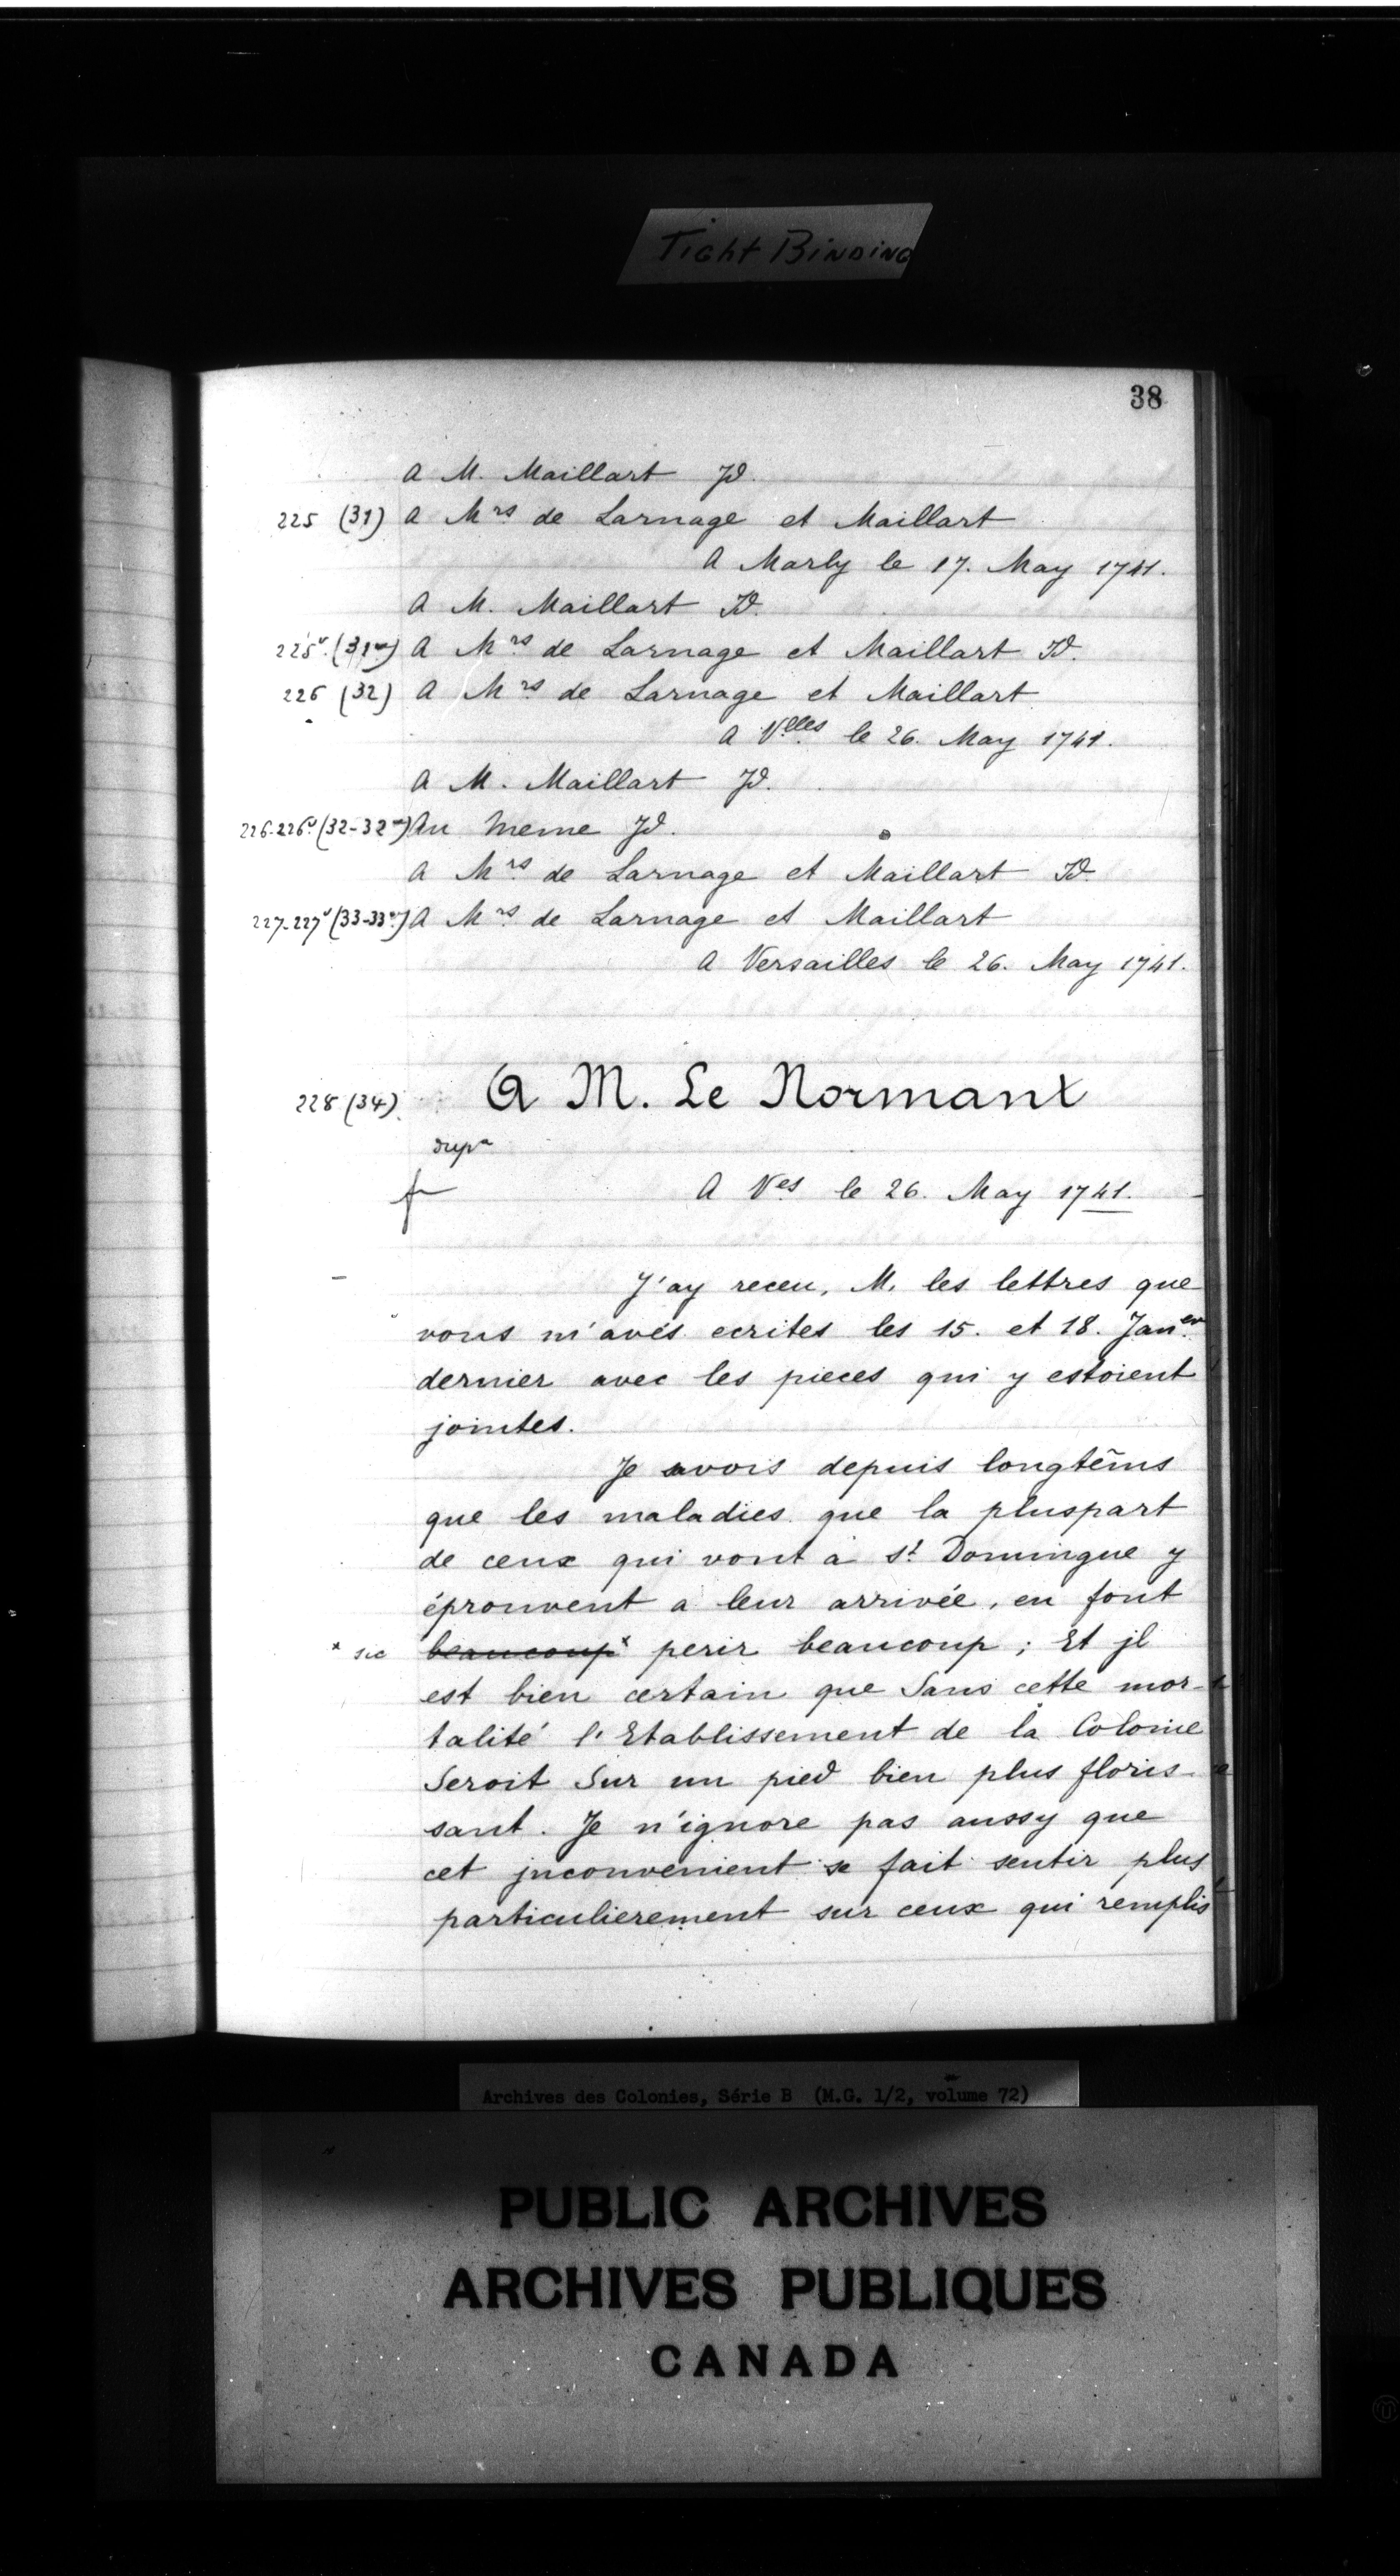 Tight Binding
38
A M. Maillart Jd.
225 (31) A Mrs de Larnage et Maillart
A Marly le 17. May 1741.
A M. Maillart Jd.
225v. (31vo) A Mrs de Larnage et Maillart Jd.
226 (32) A Mrs de Larnage et Maillart
A Vlles le 26. May 1741.
A M. Maillart Jd.
226-226v (32-32vo) Au meme Jd.
A Mrs de Larnage et Maillart Jd.
227-227v (33-33vo) A Mrs de Larnage et Maillart
A Versailles le 26. May 1741.
228 (34) A M. Le Normant
dupa
A Ves le 26. May 1741.
J'ay receu, M. les lettres que
vous m'avés ecrites les 15. et 18. Janer
dernier avec les pieces qui y estoient
jointes.
Je avois depuis longtem̃s
que les maladies que la pluspart
de ceux qui vont à St Domingue y
éprouvent a leur arrivée, en font
* sic beaucoup* perir beaucoup ; Et jl
est bien certain que Sans cette mor-
talité l'Etablissement de la Colonie
Seroit Sur un pied bien plus floris-
sant. Je n'ignore pas aussy que
cet jnconvenient se fait sentir plus
particulierement sur ceux qui remplis
Archives des Colonies, Série B (M.G. 1/2, volume 72)
PUBLIC ARCHIVES
ARCHIVES PUBLIQUES
CANADA